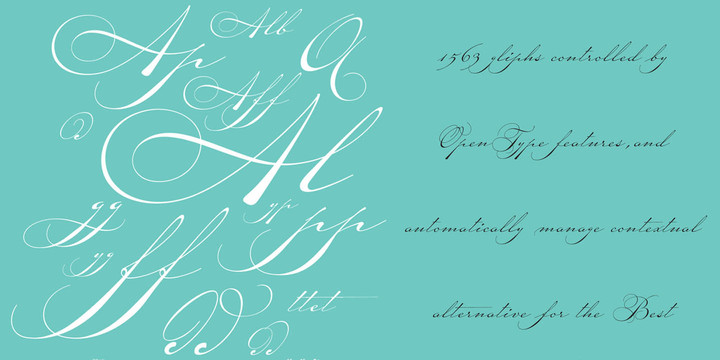 Ap
Alb
A
Aff
Al
gg
gg
ff
yp
pp
ttet
1563 gliphs controlled by
OpenType features, and
automatically manage contextual
alternative for the Best